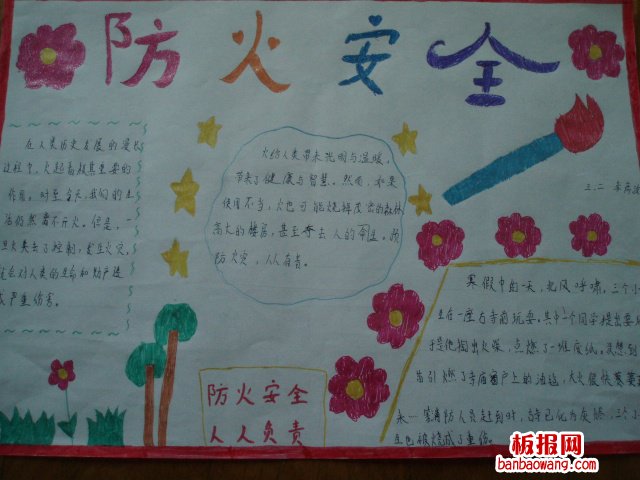 防火安全
三.二
在人类历史发展的漫长
过程中,火起着极其重要的
作用。时至今天,我们的生
活仍然离不开火。但是,一
旦火失去了控制,发生火灾,
就会对人类的生命和财产造
成严重伤害。
火给人类带来光明与温暖,
带来了健康与智慧。然而,如果
使用不当,火也可能烧掉茂密的森林
高大的楼房,甚至夺去人的
防火灾,人人有责。
寒假中的一天,北风呼啸,三个小
在一座古寺前玩耍。其中一个同学提出要
于是他掏出火柴,点燃了一堆废纸。
引燃了寺庙窗户上的 大火很快
消防人员赶到时,古寺已化为灰烬,三个
也被烧成了重伤。
防火安全
人人负责
板报网
banbaowang.com